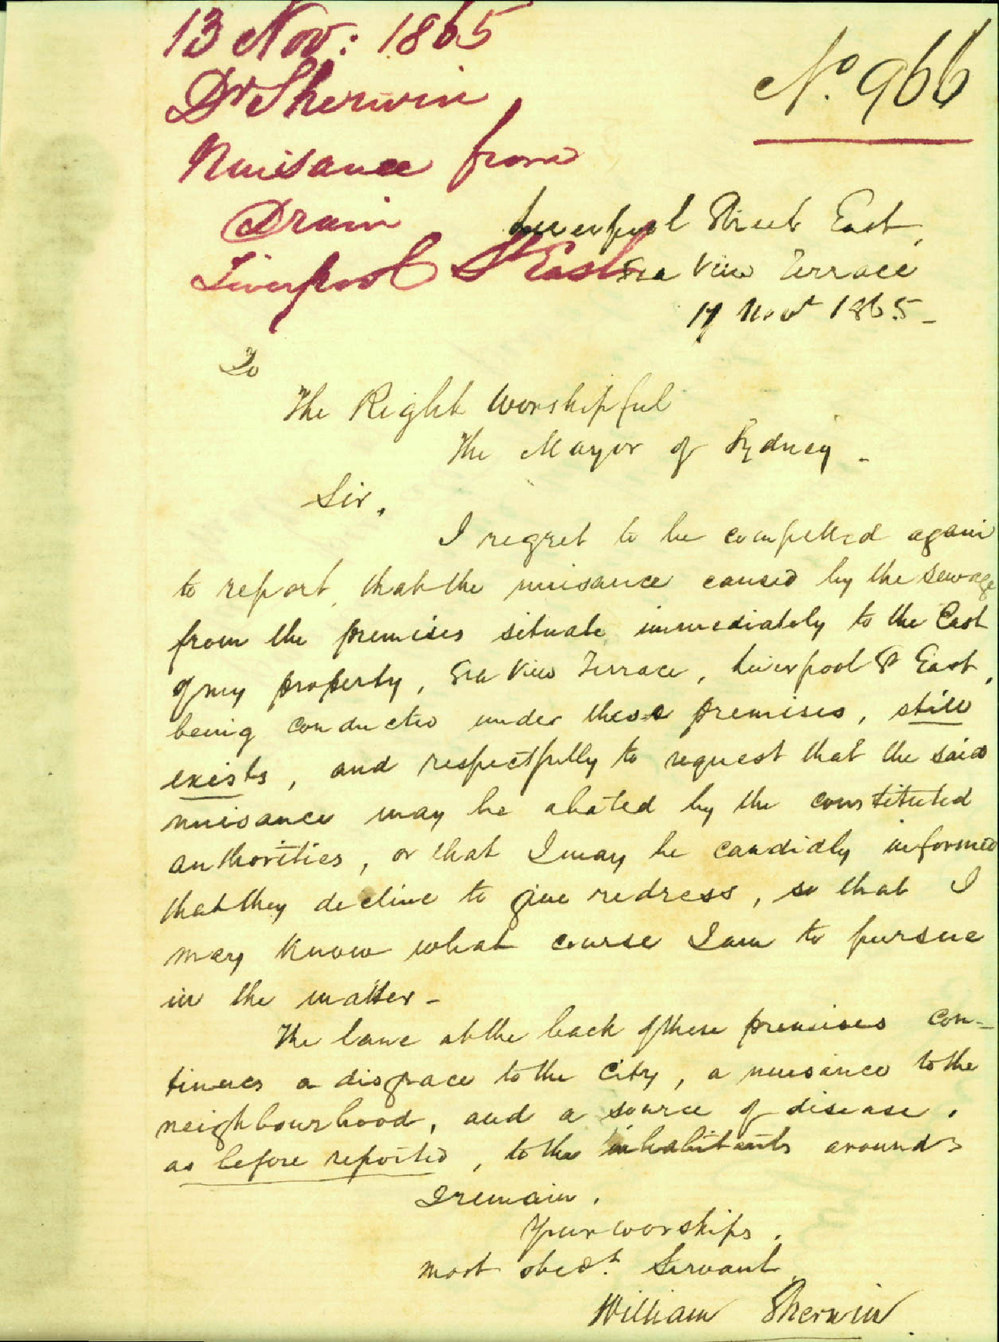 13 Nov: 1865
Dr Sherwin
Nuisance from
Drain
Liverpool St East
No. 966
Liverpool Street East,
Sea View Terrace
Novr 1865 -
To
The Right Worshipful
The Mayor of Sydney -
Sir,
I regret to be compelled again
to report, that the nuisance caused by the sewage
from the premises situate immediately to the East
of my property, Sea View Terrace, Liverpool St East,
being conducted under these premises, still
exists, and respectfully to request that the said
nuisance may be abated by the constituted
authorities, or that I may be candidly informed
that they decline to give redress, so that I
may know what course I am to pursue
in the matter -
The lane at the back of these premises con-
tinues a disgrace to the City, a nuisance to the
neighbourhood, and a source of disease,
as before reported, to the inhabitants around
I remain,
Your worships,
most obedt. Servant
William Sherwin.